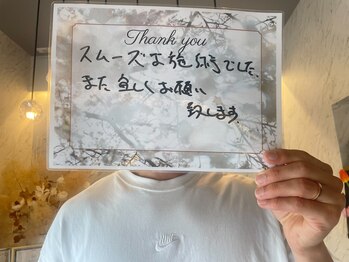 Thank you
スムーズな施術でした。
また宜しくお願い
致します。